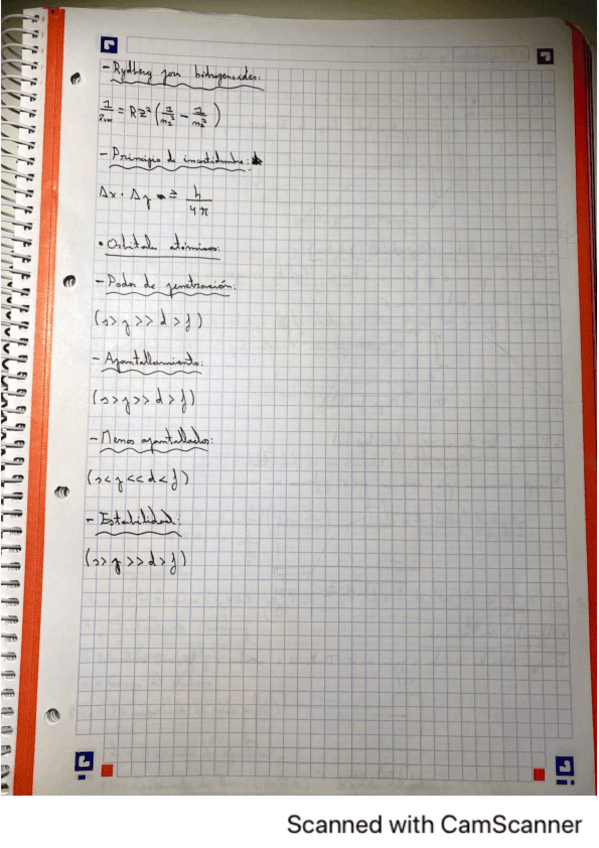 - Rydberg para hidrogenoides:
1/λvac = RZ² (1/n₁² - 1/n₂²)
- Principio de incertidumbre:
Δx · Δp ≥ h/4π
• Orbitales atómicos:
- Poder de penetración:
(s > p >> d > f)
- Apantallamiento:
(s > p >> d > f)
- Menos apantallados:
(s < p << d < f)
- Estabilidad:
(s > p >> d > f)
Scanned with CamScanner